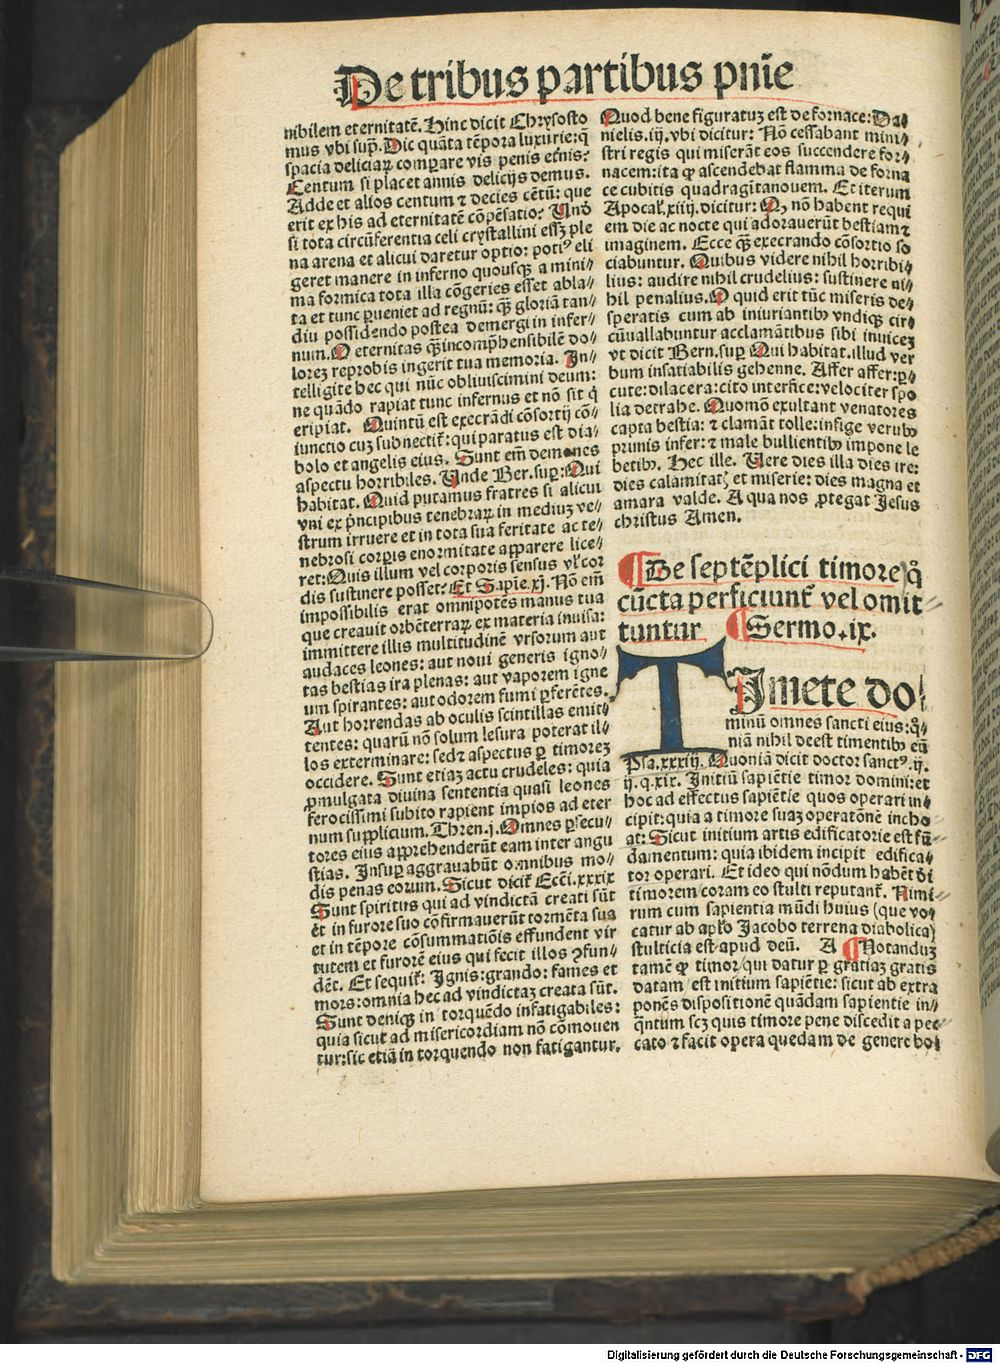 De tribus partibus pnīe
nibilem eternitatē. Hinc dicit Chrysosto
mus vbi sup̄. Dic quāta tēpora luxurie: q̄
spacia deliciaꝝ comparare vis penis et̄nis?
Centum si placet annis delicijs demus.
Adde et alios centum ⁊ decies cētū: que
erit ex his ad eternitatē cōpēsatio? Unō
si tota circūferentia celi crystallini essꝫ ple
na arena et alicui daretur optio: potiꝰ eli
geret manere in inferno quousqꝫ a mini⸗
ma formica tota illa cōgeries esset abla⸗
ta et tunc ꝑueniet ad regnū: qꝫ̄ gloriā tan⸗
diu possidendo postea demergi in infer⸗
num. O eternitas qꝫ̄ incomp̄hensibilē do⸗
lorez reprobis ingerit tua memoria. In⸗
telligite hec qui nūc obliuiscimini deum:
ne quādo rapiat tunc infernus et nō sit q̇
eripiat. Quintū est execrādi cōsortij cō⸗
iunctio cuꝫ subnectit᷑: qui paratus est dia⸗
bolo et angelis eius. Sunt em̄ demones
aspectu horribiles. Unde Ber. suꝑ: Qui
habitat. Quid putamus fratres si alicui
vni ex p̄ncipibus tenebraꝝ in mediuꝫ ve⸗
strum irruere et in tota sua feritate ac te⸗
nebrosi corꝑis enormitate apparere lice⸗
ret: Quis illum vel corporis sensus vł cor
dis sustinere posset? Et Sapīe. xj. Nō em̄
impossibilis erat omnipotēs manus tua
que creauit orbē terraꝝ ex materia inuisa:
immittere illis multitudinē vrsorum aut
audaces leones: aut noui generis igno⸗
tas bestias ira plenas: aut vaporem igne
um spirantes: aut odorem fumi ꝓferētes.
Aut horrendas ab oculis scintillas emit⸗
tentes: quarū nō solum lesura poterat il⸗
los exterminare: sedꝫ aspectus ꝑ timoreꝫ
occidere. Sunt etiaꝫ actu crudeles: quia
ꝓmulgata diuina sententia quasi leones
ferocissimi subito rapient impios ad eter
num supplicium. Thren. j. Omnes ꝑsecu⸗
tores eius apprehenderūt eam inter angu
stias. Insuꝑ aggrauabūt omnibus mo⸗
dis penas eorum. Sicut dicit᷑ Ecci. xxxix
Sunt spiritus qui ad vindictā creati sūt
et in furore suo cōfirmauerūt tormēta sua
et in tēpore cōsummatiōis effundent vir
tutem et furorē eius qui fecit illos ꝯfun⸗
dēt. Et sequit᷑: Ignis: grando: fames et
mors: omnia hec ad vindictaꝫ creata sūt.
Sunt deniqꝫ in torquēdo infatigabiles:
quia sicut ad misericordiam nō cōmouen
tur: sic etiā in torquendo non fatigantur.
Quod bene figuratuꝫ est de fornace: Da⸗
nielis. iij. vbi dicitur: Nō cessabant mini⸗
stri regis qui miserāt eos succendere for⸗
nacem: ita ꝙ ascendebat flamma de forna
ce cubitis quadragītanouem. Et iterum
Apocał. xiiij. dicitur: Q, nō habent requi
em die ac nocte qui adorauerūt bestiam ⁊
imaginem. Ecce qꝫ̄ execrando cōsortio so
ciabuntur. Quibus videre nihil horribi⸗
lius: audire nihil crudelius: sustinere ni⸗
hil penalius. O quid erit tūc miseris de⸗
speratis cum ab iniuriantibꝰ vndiqꝫ cir⸗
cūuallabuntur acclamātibus sibi inuiceꝫ
vt dicit Bern. suꝑ Qui habitat. illud ver
bum insatiabilis gehenne. Affer affer: ꝑ⸗
cute: dilacera: cito interfice: velociter spo
lia detrahe. Quomō exultant venatores
capta bestia: ⁊ clamāt tolle: infige verubꝰ
prunis infer: ⁊ male bullientibꝰ impone le
betibꝰ. Hec ille. Uere dies illa dies ire:
dies calamitatꝭ et miserie: dies magna et
amara valde. A qua nos ꝓtegat Jesus
christus Amen.
¶De septēplici timore q̇
cūcta perficiunt᷑ vel omit⸗
tuntur ¶Sermo. ix.
TImete do⸗
minū omnes sancti eius: qm̄⸗
niā nihil deest timentibꝰ eū
Psa. xxxiij. Quoniā dicit doctor sanctꝰ. ij.
ij. q. xix. Initiū sapiētie timor domini: et
hoc ad effectus sapiētie quos operari in⸗
cipit: quia a timore suaꝫ operatōnē incho⸗
at: Sicut initium artis edificatorie est fū⸗
damentum: quia ibidem incipit edifica⸗
tor operari. Et ideo qui nōdum habēt di
timorem coram eo stulti reputant᷑. Nimi⸗
rum cum sapientia mūdi huius (que vo⸗
catur ab aplo Jacobo terrena diabolica)
stulticia est apud deū. A ¶Notanduꝫ
tamē ꝙ timor/ qui datur ꝑ gratiaꝫ gratis
datam/ est initium sapiētie: sicut ab extra
ponēs dispositionē quādam sapientie in⸗
q̄ntum scꝫ quis timore pene discedit a pec⸗
cato ⁊ facit opera quedam de genere bo⸗
Digitalisierung gefördert durch die Deutsche Forschungsgemeinschaft - DFG